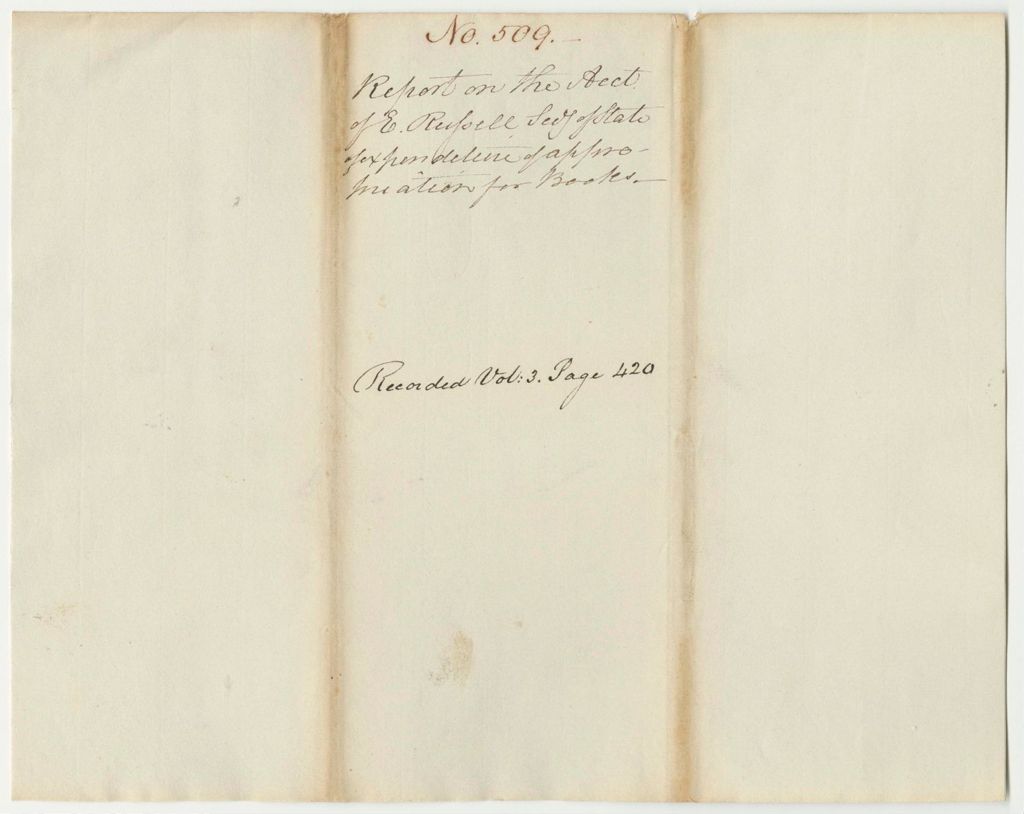 No. 509.—
Report on the Acct.
of E. Russell Secy of State
of expenditure of appro-
priation for Books.—
Recorded Vol: 3. Page 420